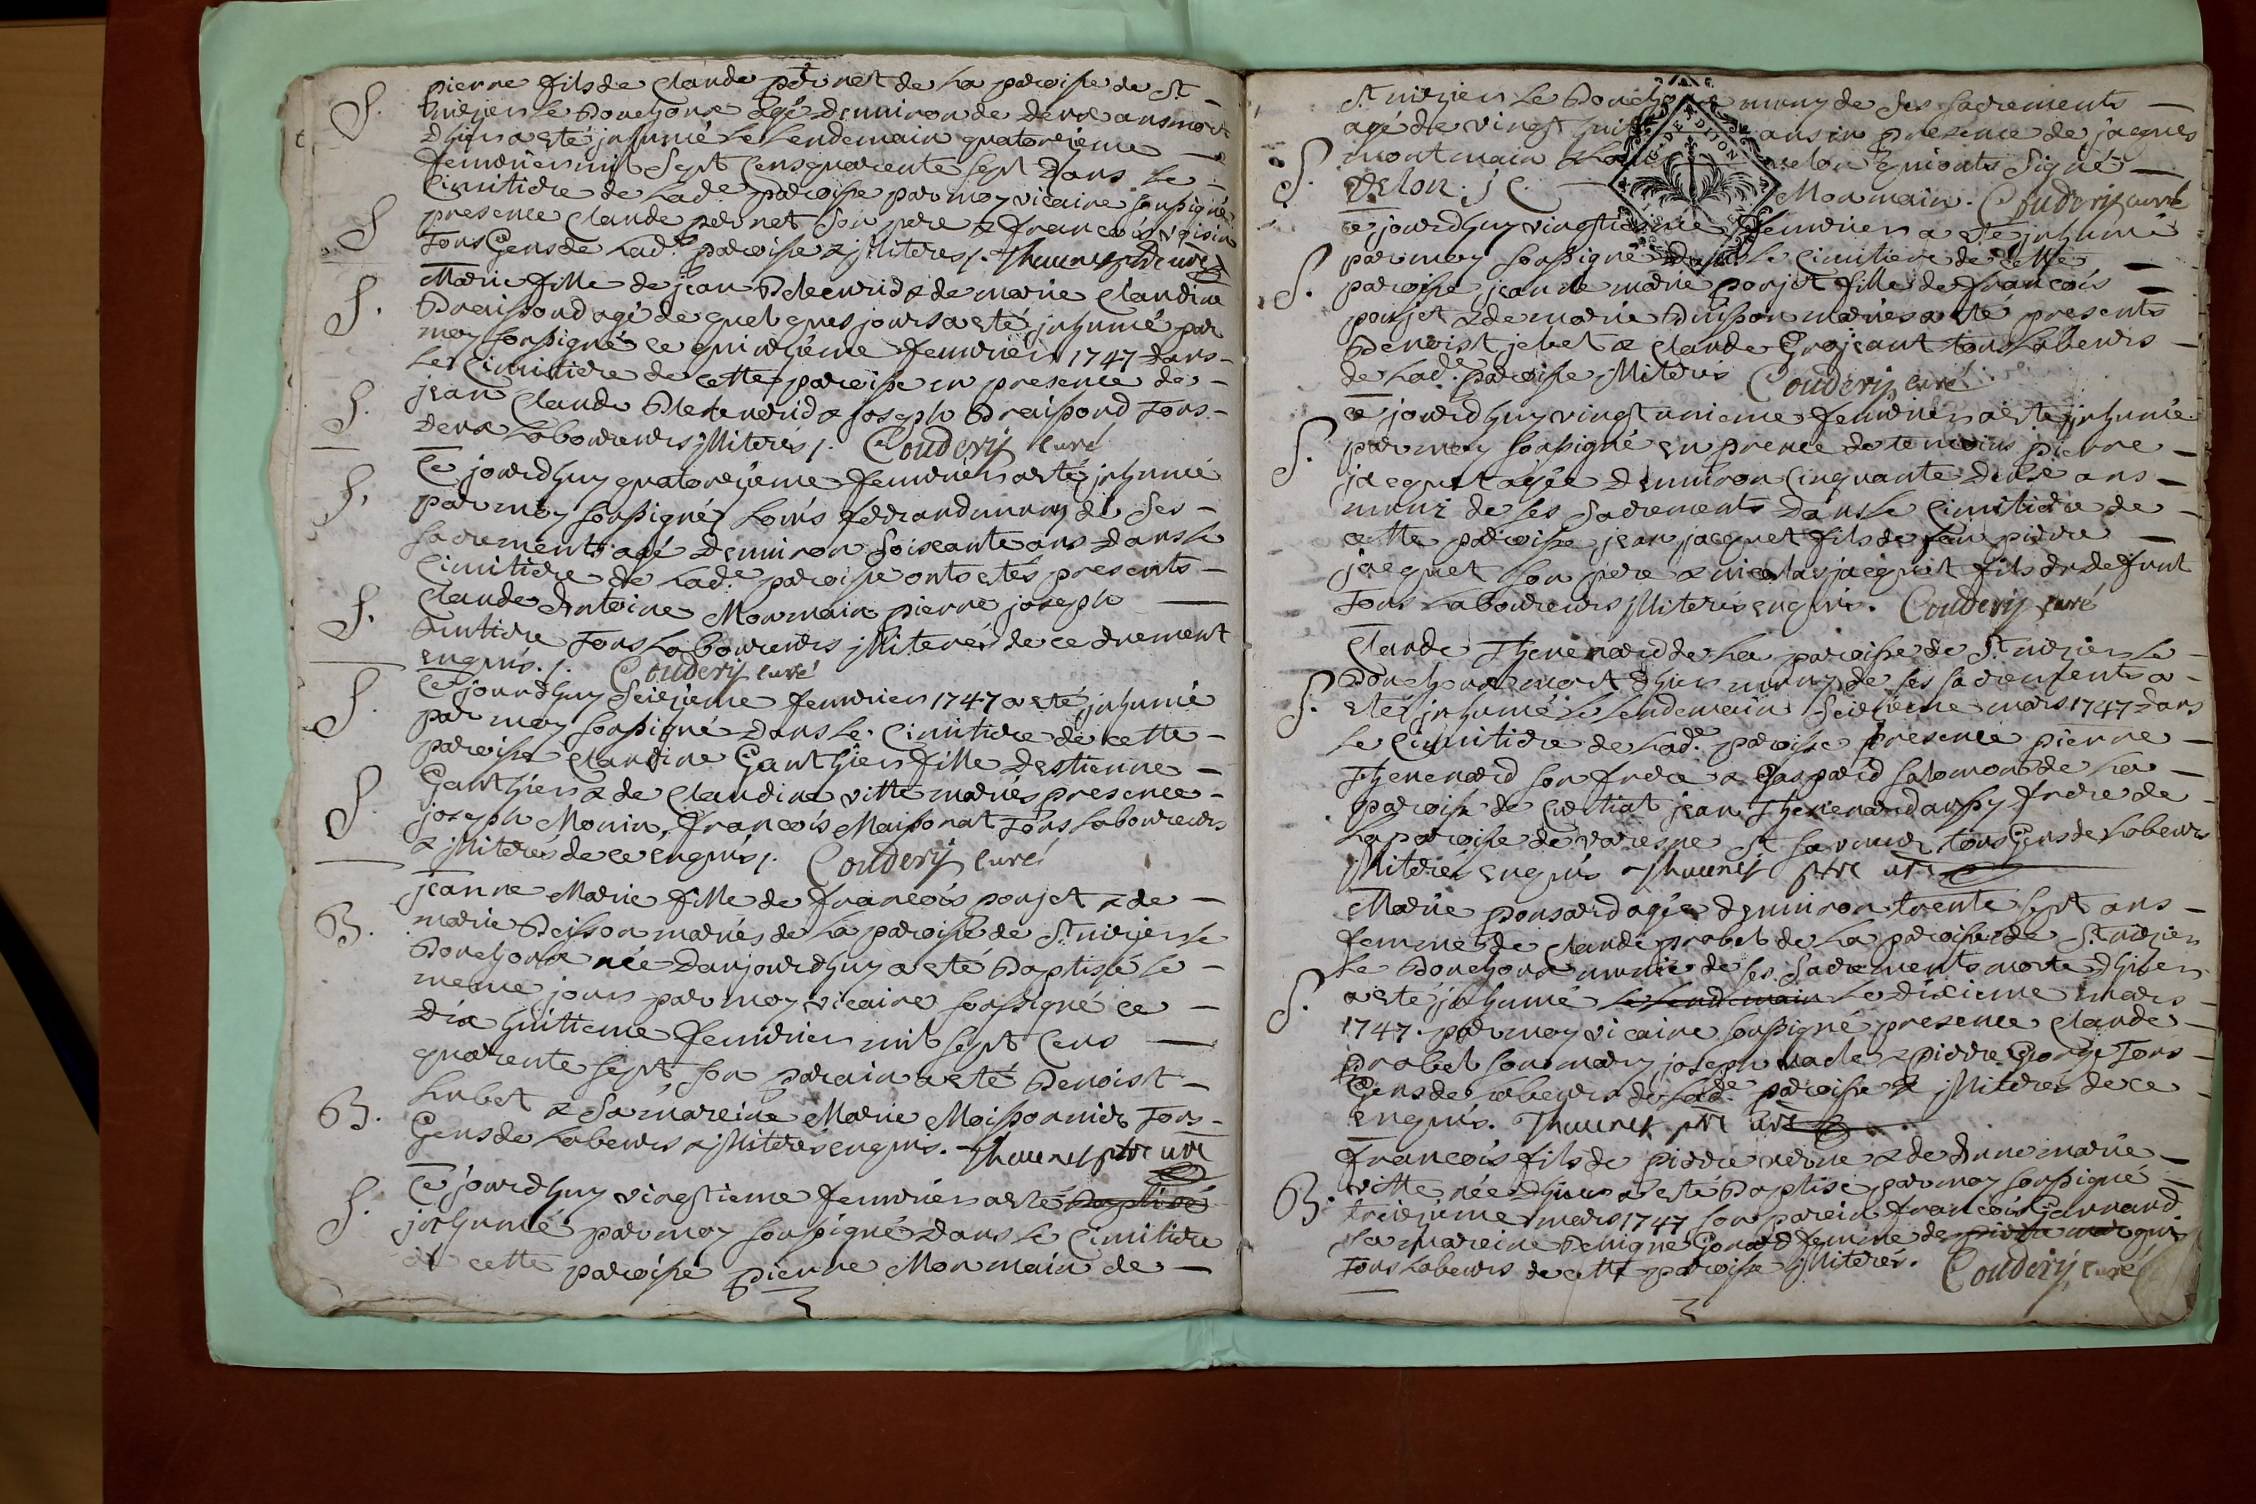 S. pierre fils de Claude pernet de La paroisse de St
nizier Le Bouchoux agé denviron de deux ans mort
dhier a esté inhumé Le Lendemain quatorzieme
feuvrier mil Sept Cens quarente sept dans Le
Cimitiere de Lad.e paroisse par moy vicaire soussigné
S presence Claude pernet Son pere & francois voisin
Tous Gens de Lad.e paroisse & jlliterés /.
S. Marie fille de jean & de marie Claudine
agé de quelques jours a esté inhumé par
moy soussigné ce quinzieme feuvrier 1747 dans
Le Cimitiere de cette paroisse en presence de
S. jean Claude & joseph Tous
deux Laboureurs jlliterés /. Couderij Curé
Ce jourdhuy quatorzieme feuvrier a esté inhumé
S. par moy soussigné Louis ferrand muny de Ses
sacrements agé denviron soiscante ans dans Le
Cimitiere de Lad.e paroisse onts etés presents
S. Claude Antoine Monmain pierre joseph
Tous Laboureurs jlliterés de ce duement
enquis. /. Couderij Curé
S. Ce jourdhuy Seizieme feuvrier 1747 a esté inhumé
par moy soussigné dans Le Cimitiere de cette
paroisse Claudine Gauthier fille destienne
S. Gauthier & de Claudine vitte mariés presence
joseph Monin, francois Maissonat Tous Laboureurs
& jlliterés de ce enquis /. Couderij Curé
B. jeanne Marie fille de francois poujet & de
marie Buisson mariés de La paroisse de St nizier Le
Bouchoux née daujourdhuy a esté Baptisé Le
meme jours par moy vicaire soussigné ce
dix huitieme feuvrier mil sept Cens
quarente sept son parain a esté Benoist
B. & Sa mareine Marie Moissonnier Tous
Gens de Labeurs & jlliterés enquis.
S. Ce jourdhuy vingtieme feuvrier a esté baptisé
inhumé par moy soussigné dans Le Cimitiere
de cette paroisse pierre Monmain de
St nizier Le Boucho muny de Ses Sacrements
agé de vingt huit ans in presence de jaques
S. montmain & onts Signé
velon. Monmain. Couderij curé
ce jourdhuy vingtieme feuvrier a esté inhumé
S. par moy soussigné dans Le Cimitiere de cette
paroisse jeanne marie poujet fille de francois
poujet & de marie Buisson mariés a été presents
Benoist & Claude Grojeant tous Labeurs
de Lad.e paroisse jlliterés Couderij curé
ce jourdhuy vingt unieme feuvrier a esté inhumé
S. par moy soussigné en prence de temoins pierre
jacquet agée denviron Cinquante deux ans
muni de ses Sacrements dans Le Cimitiere de
cette paroisse, jean jacquet fils de feu pierre
jacquet son pere & nicolas jacquet fils du defunt
Tous Laboureurs jlliterés enquis. Couderij curé
Claude Thenenard de La paroisse de St nizier Le
S. Bouchoux mort dhier muny de ses sacrements a
esté inhumé Le Lendemain Seizieme mars 1747 dans
Le Cimitiere de Lad.e paroisse presence pierre
Thenenard son frere & Gaspard Salomon de La
paroisse de jean Thenenard aussy frere de
La paroisse de varesne St sauveur tous Gens de Labeurs
jlliterés enquis
Marie ponsard agée denviron trente sept ans
femme de Claude probet de La paroisse de St nizier
Le Bouchoux munie de ses Sacrements morte dhier
S. a esté inhumé Le Lendemain Le dixieme mars
1747. par moy vicaire soussigné presence Claude
probet son mary joseph & pierre George Tous
Gens de Labeurs de Lad.e paroisse & jlliterés de ce
enquis.
francois fils de pierre & de Anne marie
B. vitte née dhier a esté Baptisé par moy soussigné
treizieme mars 1747 son parein francois
La mareine Benigne femme de
Tous Labeurs de cette paroisse jlliterés. Couderij curé